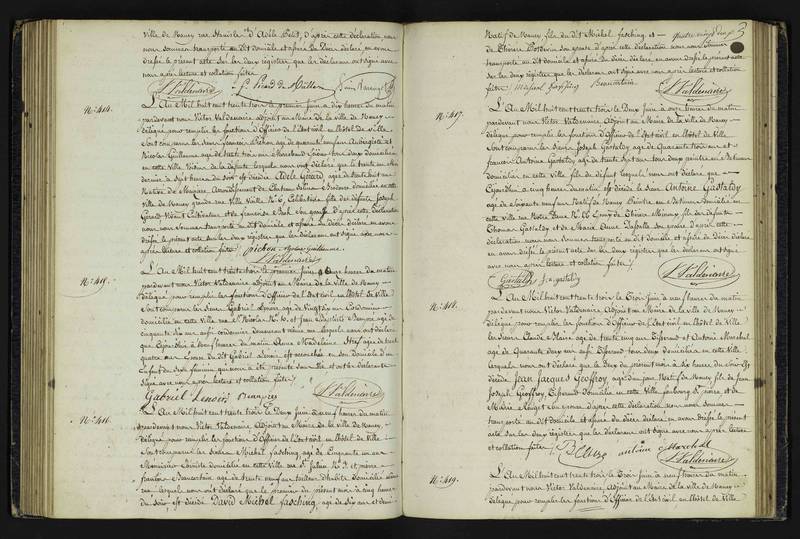 Ville de Nancy rue Stanislas et d'Adèle Petit, d'après cette déclaration, nous
nous sommes transporté au dit domicile et après du Décès déclaré, en avons
dressé le présent acte sur les deux registres que les déclarans ont signé avec
nous après lecture et collation faite.
Valdenaire
N.° 414.
L'An Mil huit cent trente trois le premier juin à dix heures du matin
pardevant nous Victor Valdenaire, adjoint au Maire de la ville de Nancy
délégué pour remplir les fonctions d'Officier de l'Etat civil en l'hôtel de Ville
Sont comparus les sieurs francois Pichon age de quarante neuf ans Aubergiste et
Nicolas Guillaume age de trente trois ans domiciliés
en cette Ville lesquels nous ont déclaré que le trente un Mai
dernier à sept heures du soir est décédée Adèle Gérard, agée de trente huit ans
Native de Arrondissement de Chateau Salins domiciliée en cette
ville de Nancy grande rue Ville Vieille N.° 6, Célibataire fille des défunts Joseph
Gérard Cultivateur et de francoise son épouse d'après cette déclaration
nous nous sommes transporté au dit domicile et après du dit décès déclaré en avons
dressé le présent acte sur les deux registres que les déclarans ont signé avec nous
après lecture et collation faite. Pichon Guillaume
Valdenaire
N.° 415.
L'An Mil huit cent trente trois le premier Juin à onze heures du matin
pardevant nous Victor Valdenaire, Adjoint au Maire de la ville de Nancy
Délégué pour remplir les fonctions d'Officier de l'Etat civil en l'hôtel de Ville
Sont comparus les Sieurs Gabriel Lenoir age de Vingt six ans Cordonnier
domicilié en cette Ville rue St Nicolas N.° et Jean Baptiste age de
cinquante six ans aussi cordonnier demeurant même rue lesquels nous ont déclaré
que Cejourd'hui à heures du matin Anne Madeleine agée de trente
quatre ans Epouse du dit Gabriel Lenoir est accouchée en son domicile d'un
Enfant du sexe féminin, qui nous a été présenté sans vie et ont les déclarans
signé avec nous après lecture et collation faite.
Gabriel Lenoir
Valdenaire
N.° 416.
L'An Mil huit cent trente trois le Deux Juin à neuf heures du matin
pardevant nous Victor Valdenaire, Adjoint au Maire de la ville de Nancy
Délégué pour remplir les fonctions d'Officier de l'Etat civil en l'hôtel de Ville
Sont comparus les sieurs Michel fasching, age de Cinquante un ans
Menuisier domicilié en cette ville rue St Julien N.° et pierre
francois Beaucertain age de trente neuf ans tailleur d'habits Domicilié même
rue lesquels nous ont déclaré que le premier du présent mois à cinq heures
du soir est décédé David Michel fasching, age de dix ans et demi
Natif de Nancy fils du dit Michel fasching et
de Thérèse son épouse d'après cette déclaration nous nous sommes
transporté au dit domicile et après du décès déclaré en avons dressé le présent acte
sur les deux registres que les déclarans ont signé avec nous après lecture et collation
faite. Beaucertain Valdenaire
3
N.° 417.
L'An Mil huit cent trente trois le Deux Juin à onze heures du matin
pardevant nous Victor Valdenaire, Adjoint au Maire de la ville de Nancy
délégué pour remplir les fonctions d'Officier de l'Etat civil en l'hôtel de Ville
Sont comparus les Sieurs Joseph Gastaldy age de Quarante trois ans et
francois Antoine Gastaldy age de trente sept ans tous deux peintres
domiciliés en cette ville fils du défunt lesquels nous ont déclaré que
Cejourd'hui à cinq heures du matin est décédé le Sieur Antoine Gastaldy
age de Soixante neuf ans Natif de Nancy Peintre domicilié en
cette ville rue Notre Dame N.° 66 Epoux de Thérèse fils des défunts
Thomas Gastaldy et de Marie Anne son épouse d'après cette
déclaration nous nous sommes transporté au dit domicile et après du décès déclaré
en avons dressé le présent acte sur les deux registres que les déclarans ont signé
avec nous après lecture et collation faite.
Gastaldy f. a. gastaldy Valdenaire
N.° 418.
L'An Mil huit cent trente trois le Trois Juin à neuf heures du matin
pardevant nous Victor Valdenaire, Adjoint au Maire de la ville de Nancy
délégué pour remplir les fonctions d'Officier de l'Etat civil en l'hôtel de Ville
les Sieurs Claude age de trente cinq ans Tisserand et Antoine Marchal
age de Quarante deux ans aussi Tisserand tous deux Domiciliés en cette Ville
lesquels nous ont déclaré que le Deux du présent mois à dix heures du soir est
décédé Jean Jacques Geoffroy, age d'un jour Natif de Nancy fils de Jean
Joseph Geoffroy, Tisserand Domicilié en cette Ville faubourg St pierre et de
Marie son épouse d'après cette déclaration nous nous sommes
transporté au dit domicile et après du décès déclaré en avons dressé le présent
acte sur les deux registres que les déclarans ont signé avec nous après lecture
et collation faite. antoine Marchal
Valdenaire
N.° 419.
L'An Mil huit cent trente trois le Trois Juin à neuf heures du matin
pardevant nous Victor Valdenaire, Adjoint au Maire de la ville de Nancy
délégué pour remplir les fonctions d'Officier de l'Etat civil en l'hôtel de Ville